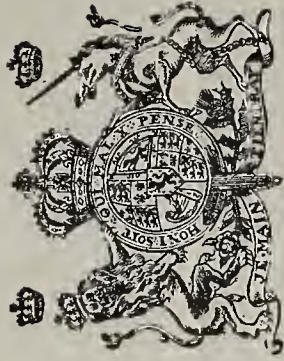 HONI·SOIT·QUI·MAL·Y·PENSE
JE·MAIN